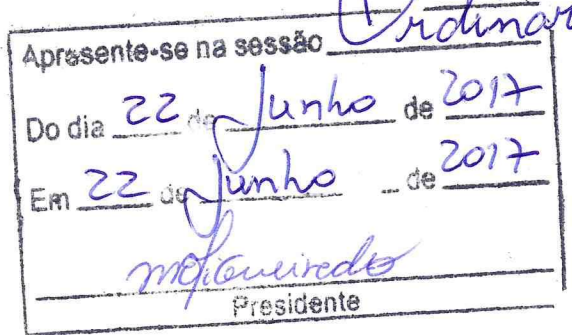 Apresente-se na sessão Ordinar
Do dia 22 de Junho de 2017
Em 22 de Junho de 2017
Presidente